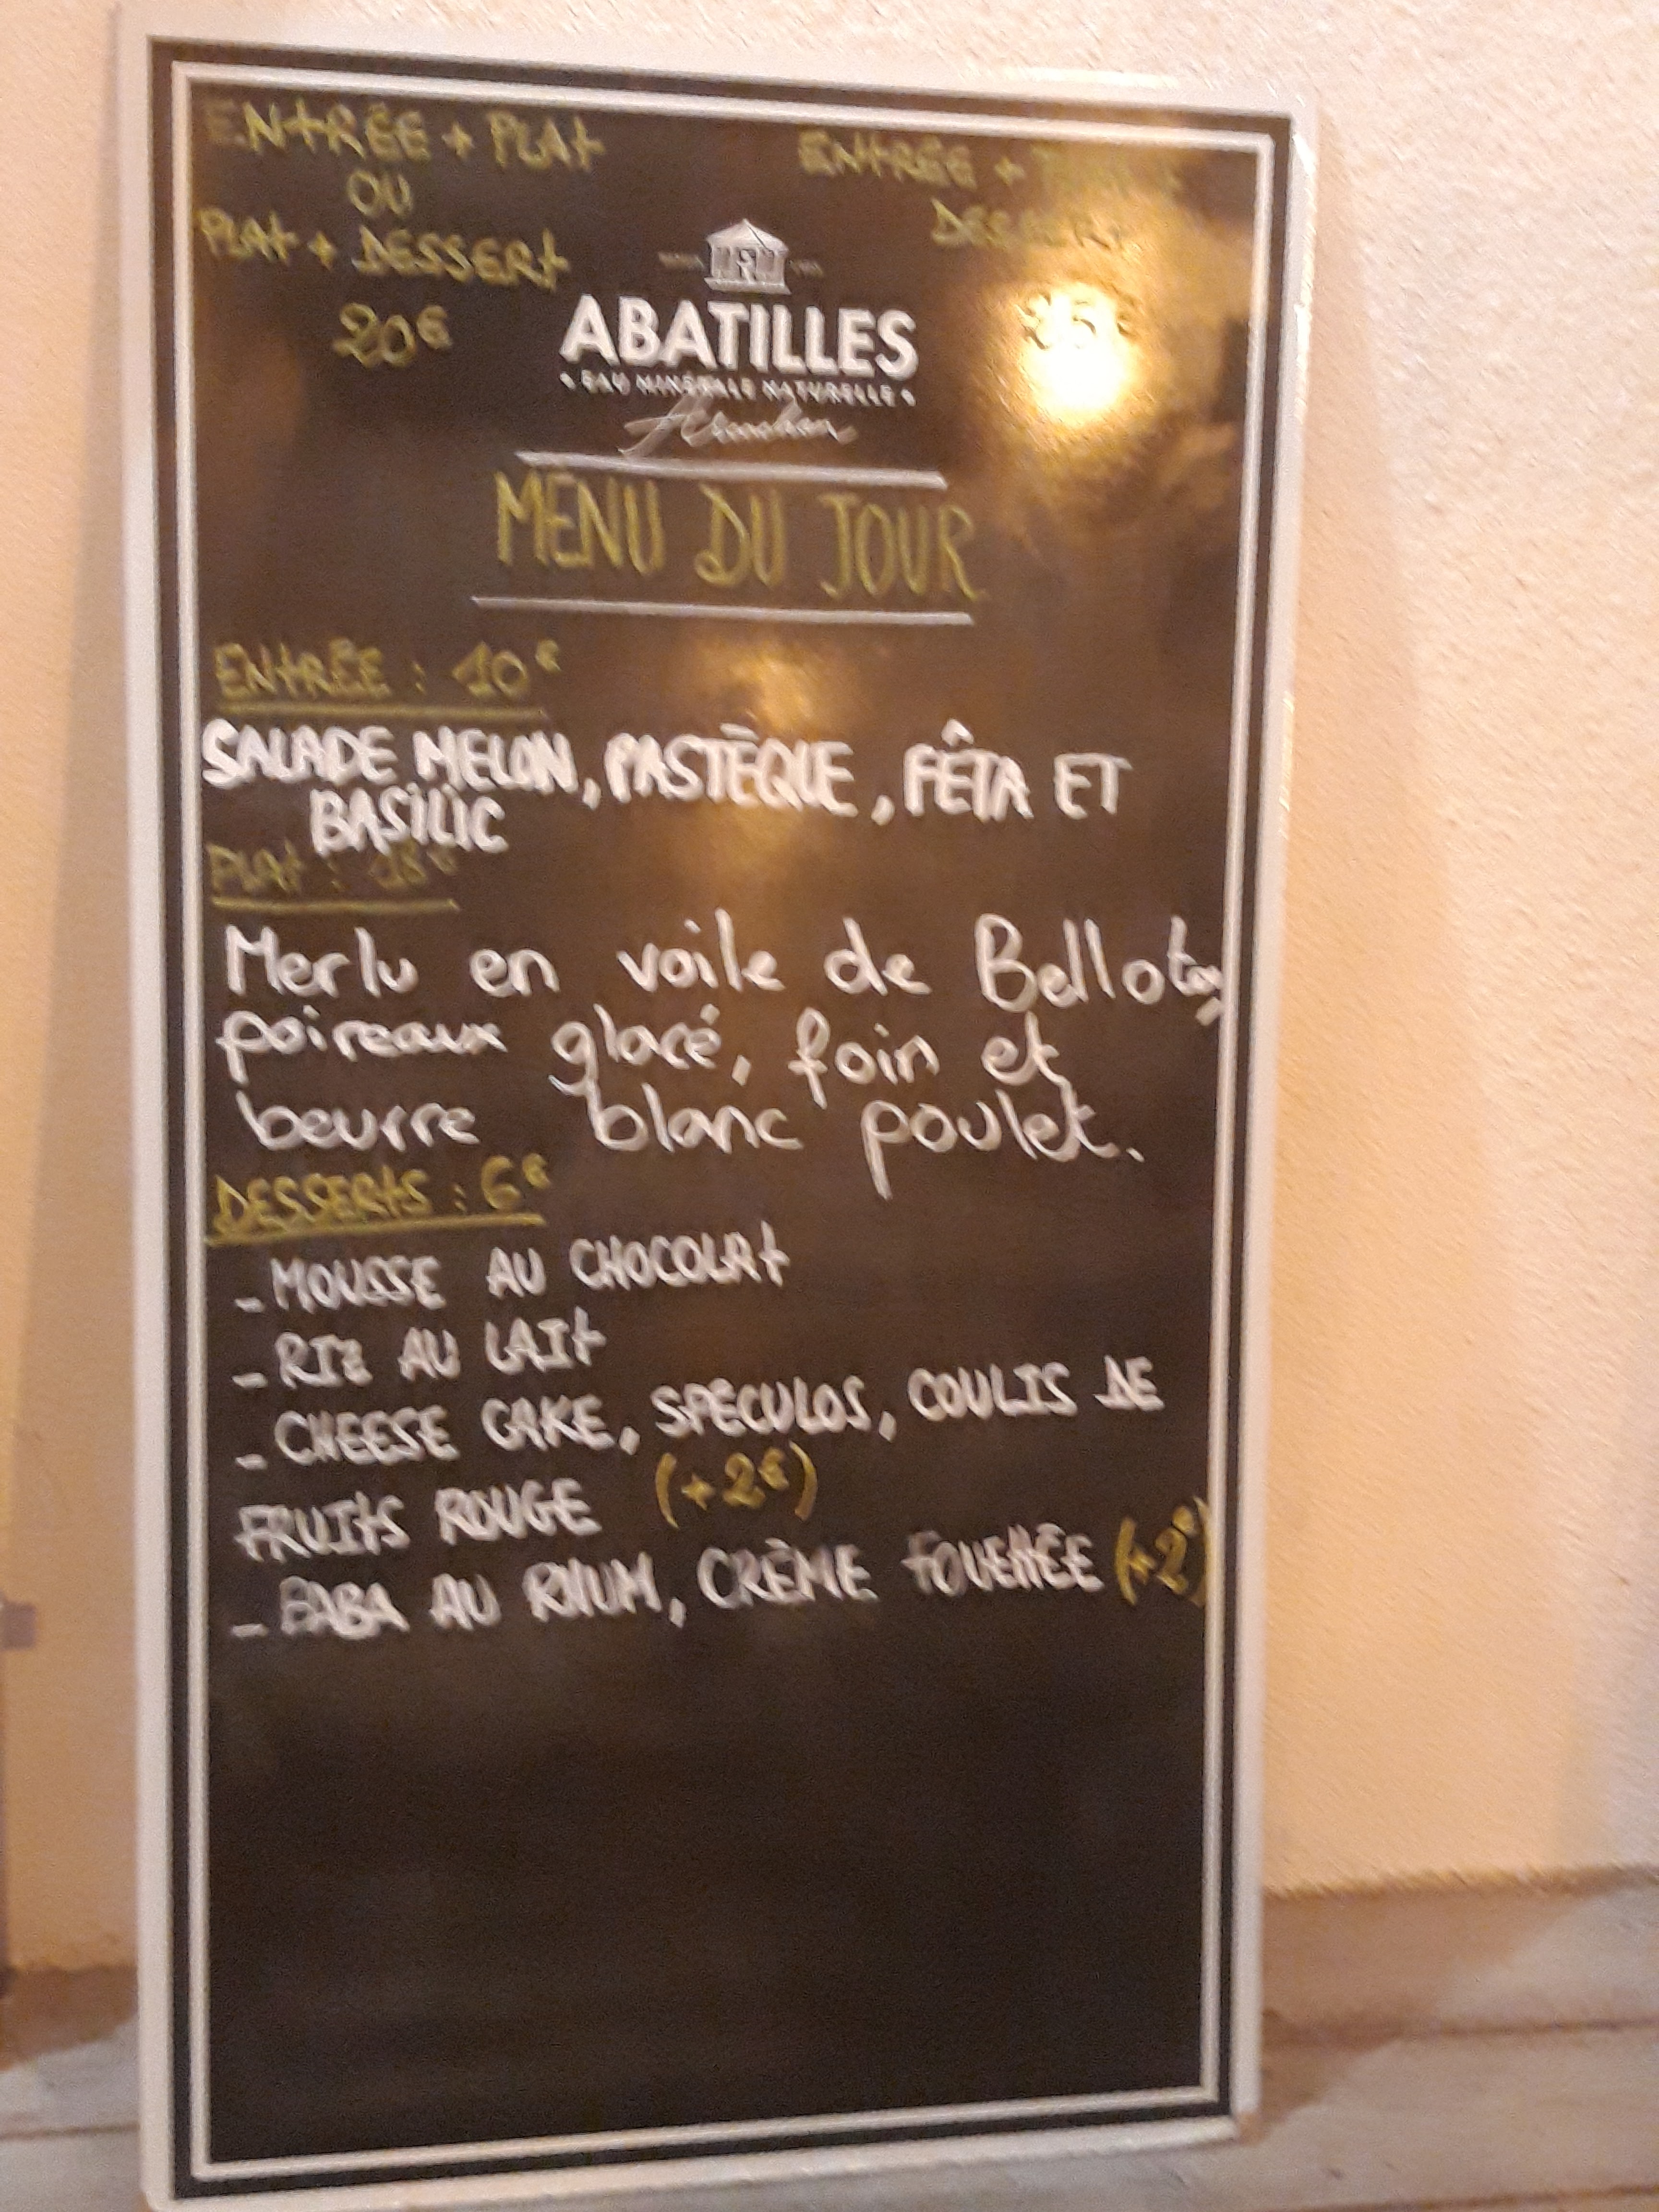 ENTRÉE + PLAT
OU
PLAT + DESSERT
20€
ENTRÉE +
DESSERT
ABATILLES
EAU MINÉRALE NATURELLE
Arcachon
MENU DU JOUR
ENTRÉE : 10€
SALADE MELON, PASTÈQUE, FÊTA ET
BASILIC
PLAT : 18€
Merlu en voile de Bellota,
poireaux glacé, foin et
beurre blanc poulet.
DESSERTS : 6€
- MOUSSE AU CHOCOLAT
- RIZ AU LAIT
- CHEESE CAKE, SPÉCULOS, COULIS DE
FRUITS ROUGE (+2€)
- BABA AU RHUM, CRÈME FOUETTÉE (+2€)